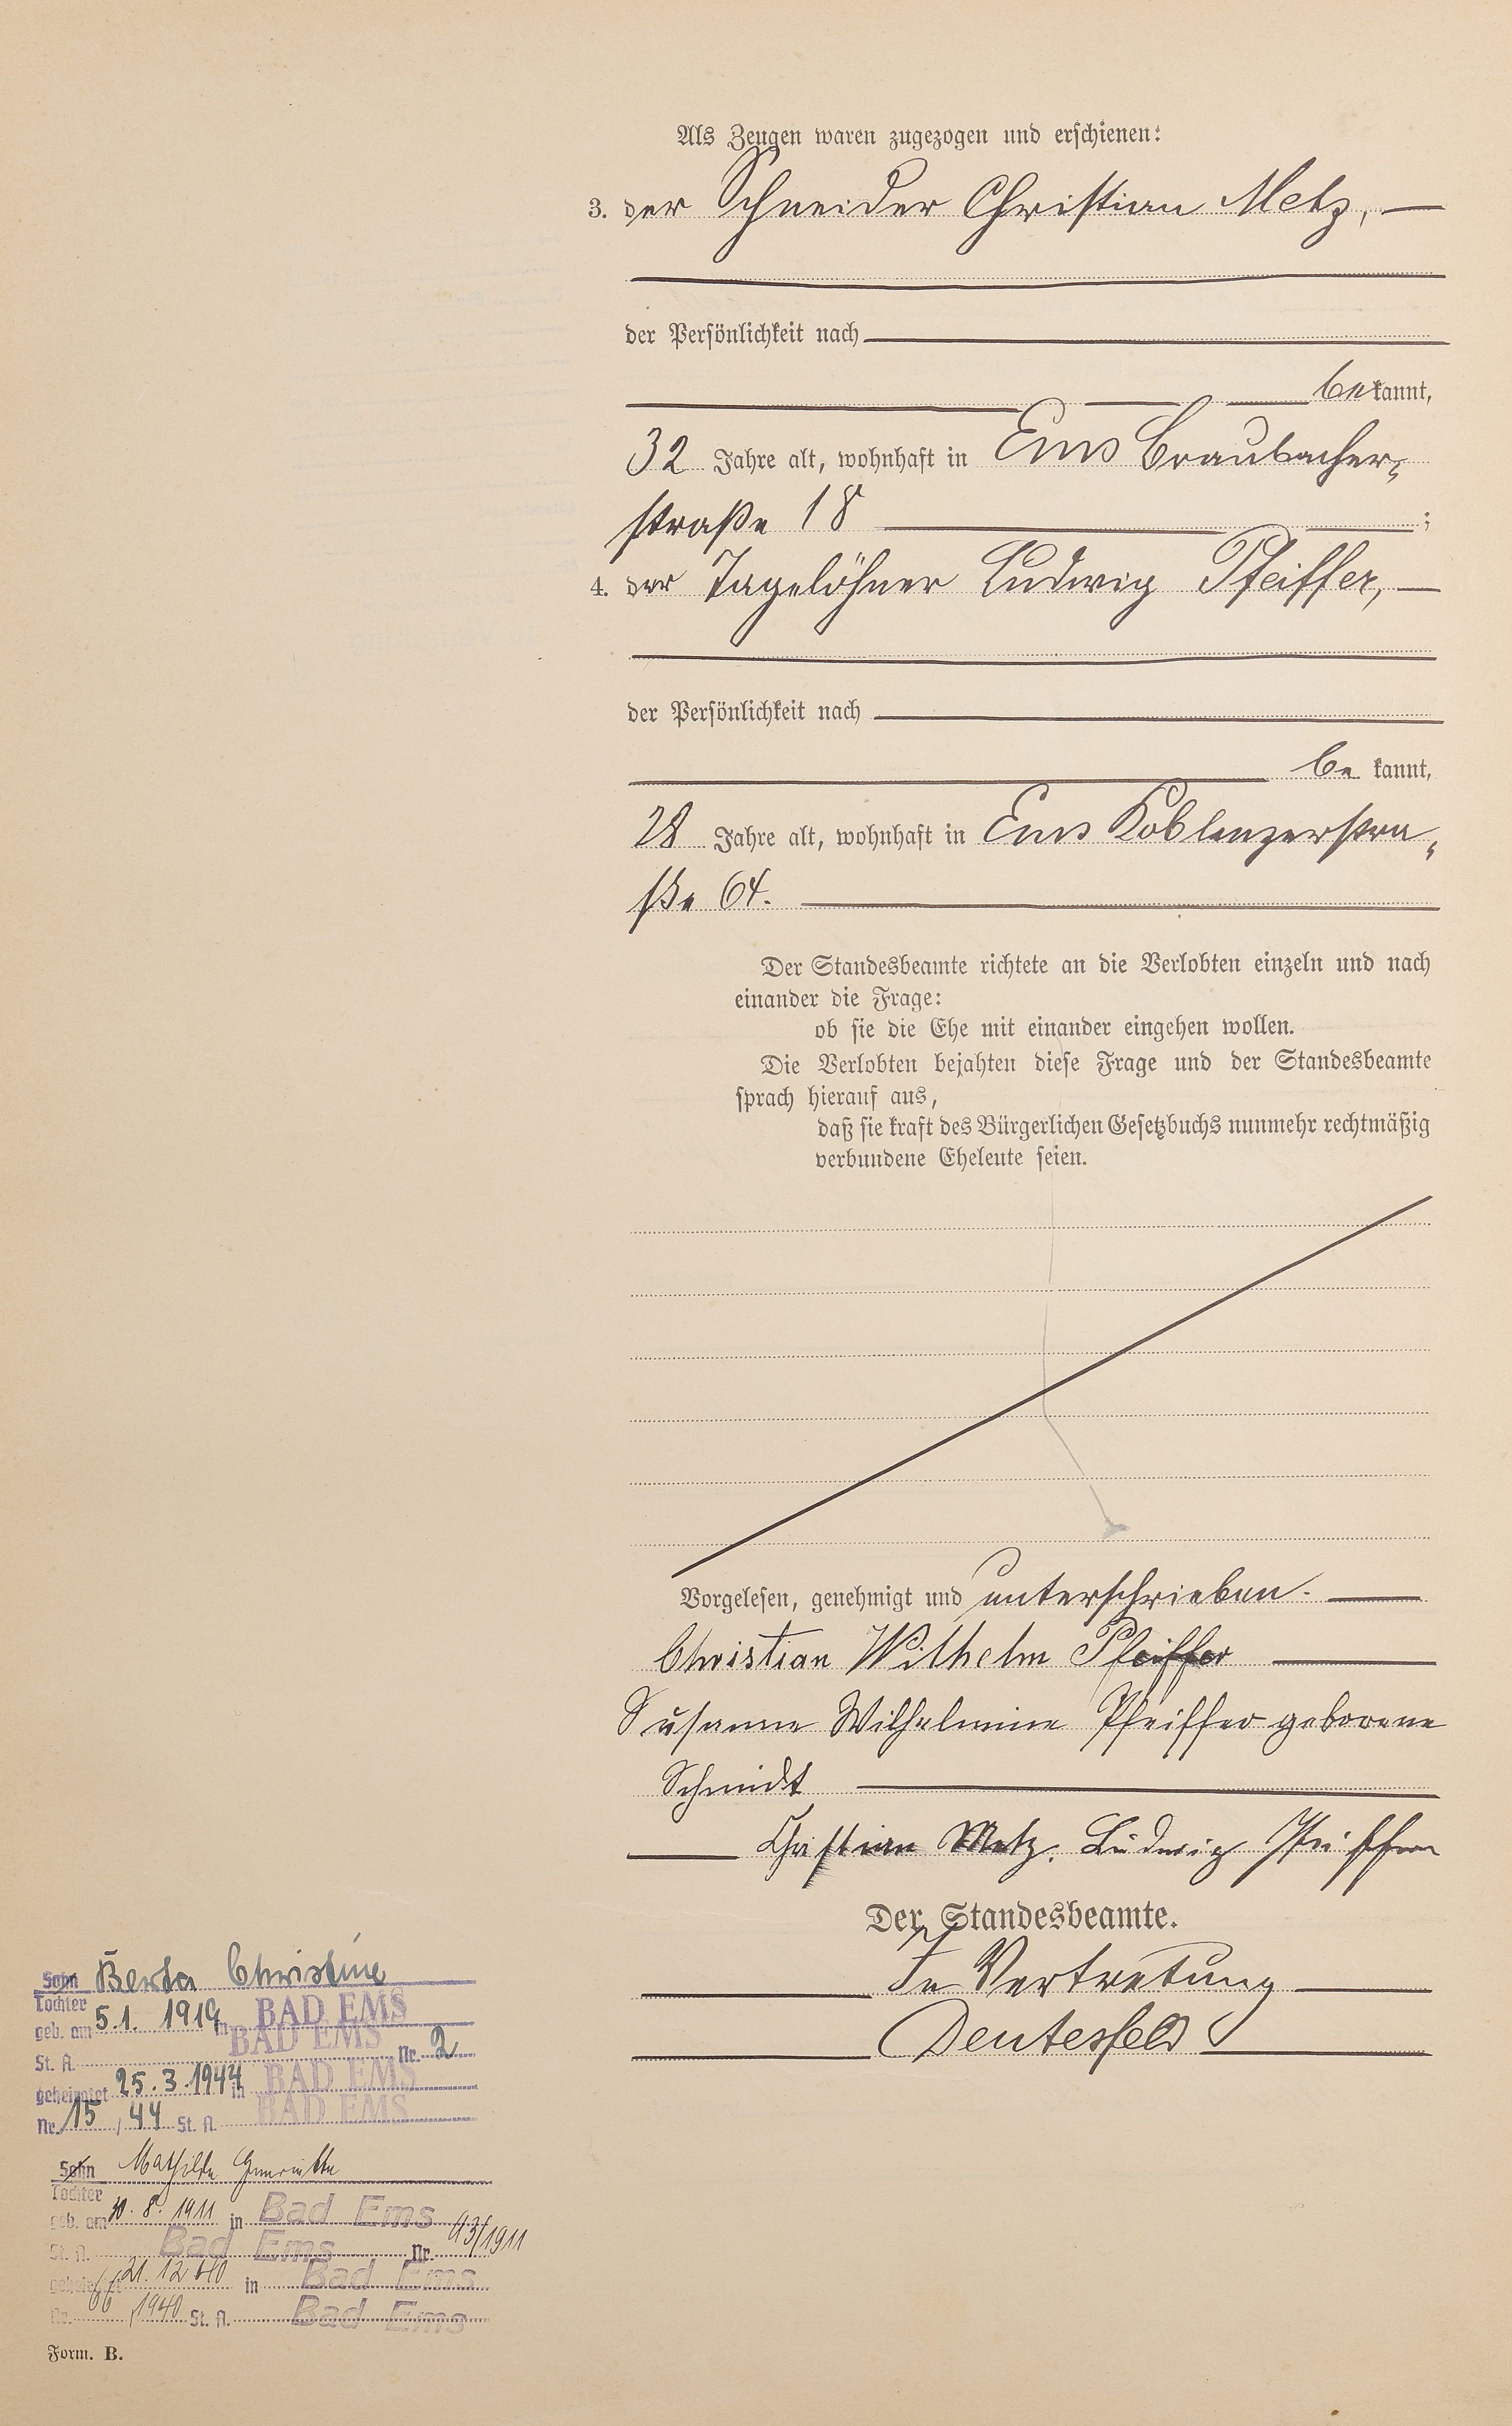 Als Zeugen waren zugezogen und erschienen:
3. der Schneider Christian Metz,
der Persönlichkeit nach
bekannt,
32 Jahre alt, wohnhaft in Ems Braubacher-
straße 18 ;
4. der Tagelöhner Ludwig Pfeiffer,
der Persönlichkeit nach
be kannt,
28 Jahre alt, wohnhaft in Ems Koblenzerstra-
ße 64.
Der Standesbeamte richtete an die Verlobten einzeln und nach
einander die Frage:
ob sie die Ehe mit einander eingehen wollen.
Die Verlobten bejahten diese Frage und der Standesbeamte
sprach hierauf aus,
daß sie kraft des Bürgerlichen Gesetzbuchs nunmehr rechtmäßig
verbundene Eheleute seien.
Vorgelesen, genehmigt und unterschrieben.
Christian Wilhelm Pfeiffer
Susanne Wilhelmine Pfeiffer geborene
Schmidt
Christian Metz. Ludwig Pfeiffer
Der Standesbeamte.
In Vertretung
Deutesfeld
Sohn Berta Christine
Tochter
geb. am 5.1. 1919 in BAD EMS
St. A. BAD EMS Nr. 2
geheiratet 25.3.1944 in BAD EMS
Nr. 15 / 44 St. A. BAD EMS
Sohn Mathilde Henriette
Tochter
geb. am 30. 8. 1911 in Bad Ems
St. A. Bad Ems Nr. 93/1911
geheiratet 21. 12 40 in Bad Ems
Nr. 66 / 1940 St. A. Bad Ems
Form. B.